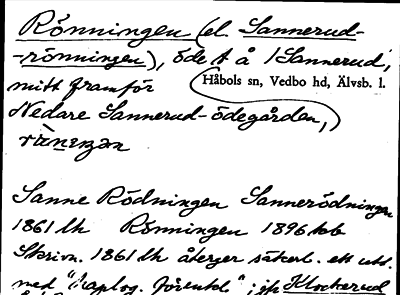 Rönningen (el. Sannerud-
-rönningen), öde t å 1 Sannerud,
mitt framför
Håbols sn, Vedbo hd, Älvsb. l.
Nedare Sannerud-ödegården,)
Sanne Rödningen Sannerödningen
1861 lk Rönningen 1896 kb
Skrivn. 1861 lk återger säkerl. ett utt.
med "haplog. förenkl" jfr Klockerud